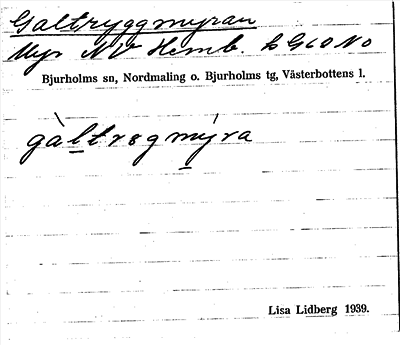 Galtryggmyran
Myr NV Hemb. b G60 NO
Bjurholms sn, Nordmaling o. Bjurholms tg, Västerbottens l.
gàltrygmýra
Lisa Lidberg 1939.